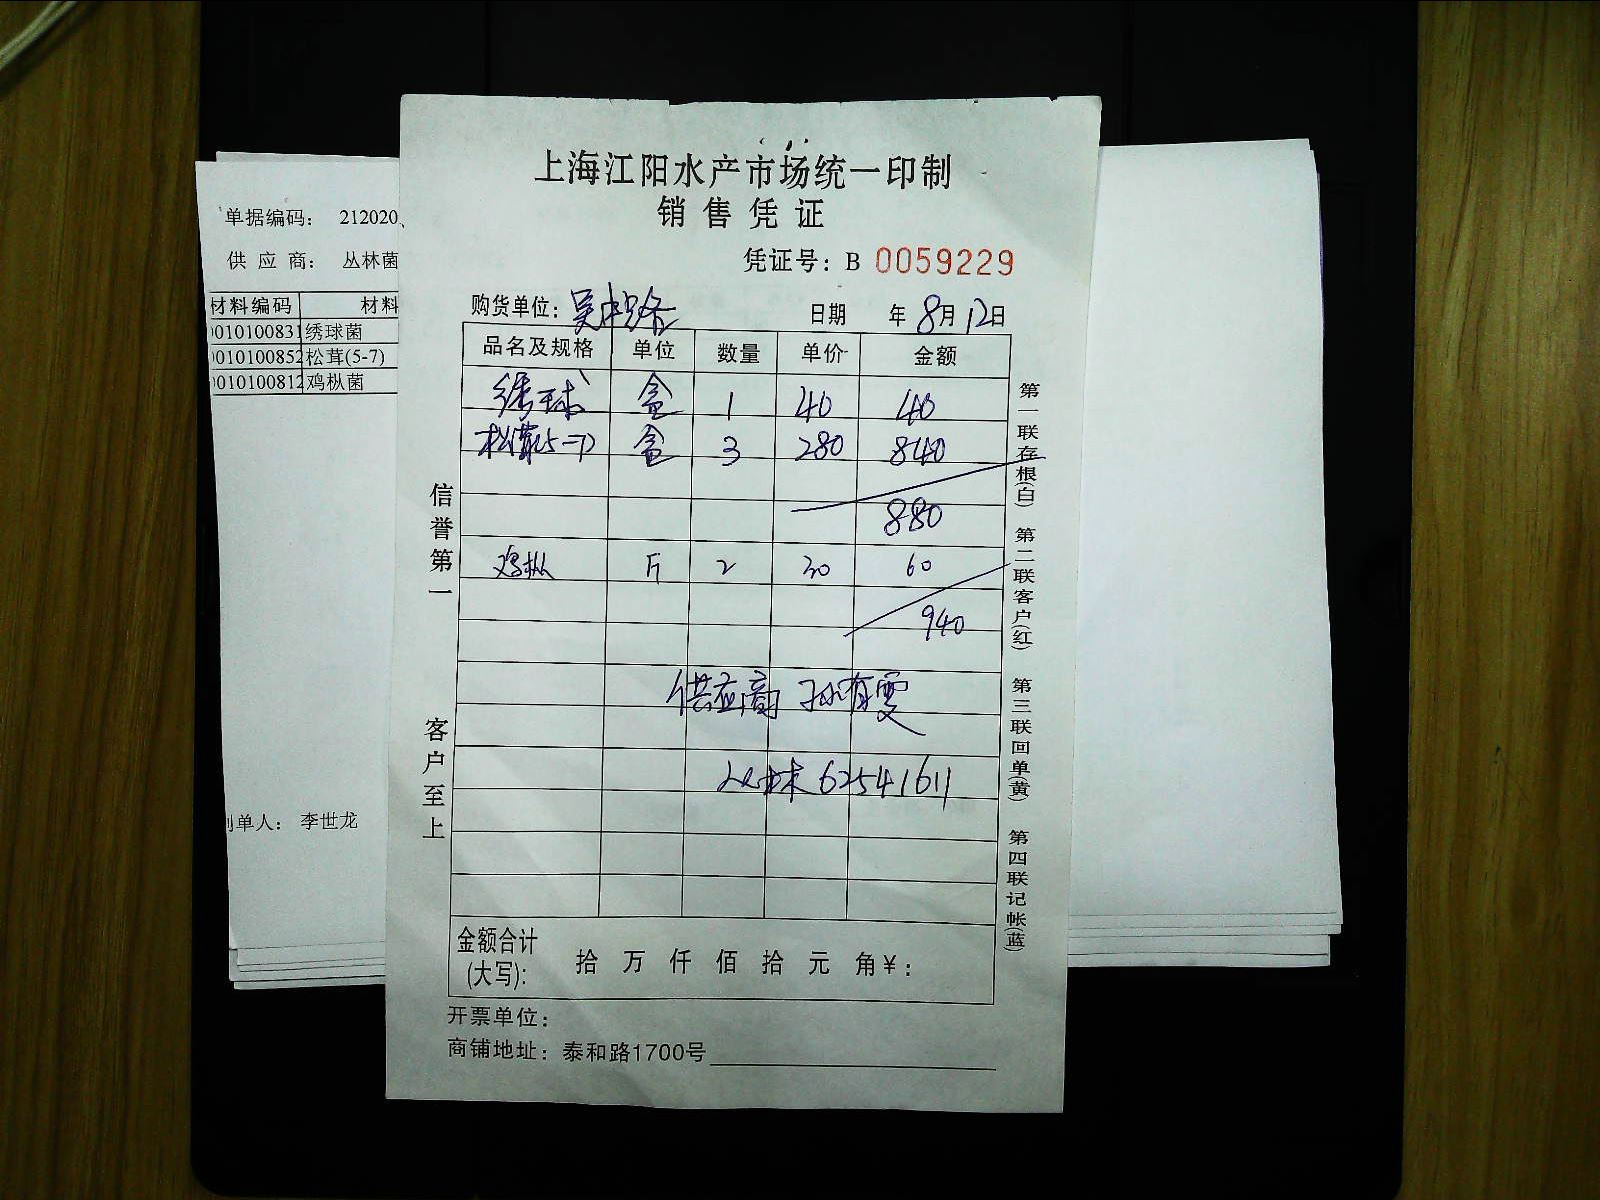 上海江阳水产市场统一印制
销售凭证
凭证号：B 0059229
购货单位：吴中路 日期 年8月12日
品名及规格 单位 数量 单价 金额
绣球 盒 1 40 40
松茸(5-7) 盒 3 280 840
880
鸡枞 斤 2 30 60
940
供应商 孙有雯
丛林 62541611
金额合计(大写): 拾 万 仟 佰 拾 元 角¥：
开票单位：
商铺地址：泰和路1700号
信誉第一
客户至上
第一联存根(白)
第二联客户(红)
第三联回单(黄)
第四联记帐(蓝)
单据编码： 212020
供应商： 丛林菌
材料编码 材料
010100831 绣球菌
010100852 松茸(5-7)
010100812 鸡枞菌
制单人： 李世龙